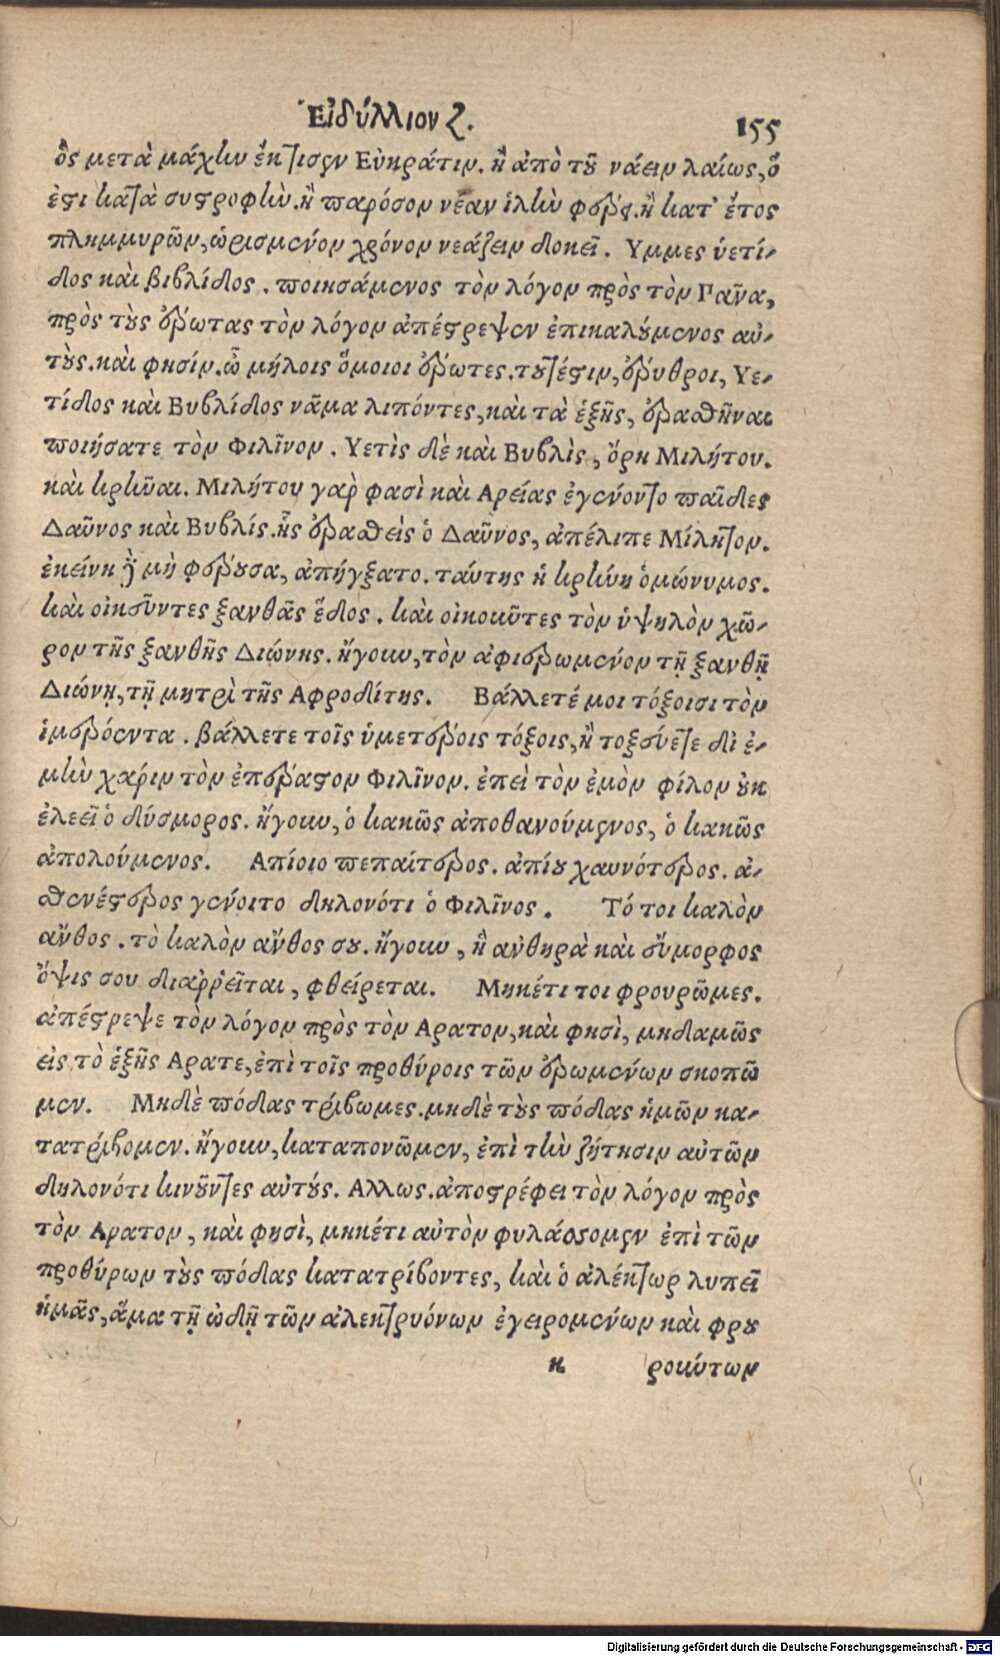 Εἰδύλλιον ζ. 155
ὃς μετὰ μάχην ἔκτισεν Εὐκράτιν. ἢ ἀπὸ τοῦ νάειν λαίως, ὅ
ἐστι κατὰ συστροφήν. ἢ παρόσον νέαν ἰλὺν φέρει. ἢ κατ' ἔτος
πλημμυρῶν, ὡρισμένον χρόνον νεάζειν δοκεῖ. Υμμες ὑετί-
δος καὶ βιβλίδος. ποιησάμενος τὸν λόγον πρὸς τὸν Γαῦνα,
πρὸς τοὺς ἔρωτας τὸν λόγον ἀπέστρεψεν ἐπικαλούμενος αὐ-
τούς. καὶ φησίν. ὦ μήλοις ὅμοιοι ἔρωτες. τουτέστιν, ἐρυθροι, Υε-
τίδος καὶ Βυβλίδος νᾶμα λιπόντες, καὶ τὰ ἑξῆς, ἐρασθῆναι
ποιήσατε τὸν Φιλῖνον. Υετὶς δὲ καὶ Βυβλὶς, ὄρη Μιλήτου.
καὶ κρῆναι. Μιλήτου γὰρ φασὶ καὶ Αρείας ἐγένοντο παῖδες
Δαῦνος καὶ Βυβλίς. ἧς ἐρασθεὶς ὁ Δαῦνος, ἀπέλιπε Μίλητον.
ἐκείνη δὲ μὴ φέρουσα, ἀπήγξατο. ταύτης ἡ κρήνη ὁμώνυμος.
καὶ οἰκοῦντες ξανθᾶς ἕδος. καὶ οἰκοῦντες τὸν ὑψηλὸν χῶ-
ρον τῆς ξανθῆς Διώνης. ἤγουν, τὸν ἀφιερωμένον τῇ ξανθῇ
Διώνῃ, τῇ μητρὶ τῆς Αφροδίτης. Βάλλετέ μοι τόξοισι τὸν
ἱμερόεντα. βάλλετε τοῖς ὑμετέροις τόξοις, ἢ τοξεύετε δι ἐ-
μὴν χάριν τὸν ἐπέραστον Φιλῖνον. ἐπεὶ τὸν ἐμὸν φίλον οὐκ
ἐλεεῖ ὁ δύσμορος. ἤγουν, ὁ κακῶς ἀποθανούμενος, ὁ κακῶς
ἀπολούμενος. Απίοιο πεπαίτερος. ἀπίου χαυνότερος. ἀ-
σθενέστερος γένοιτο δηλονότι ὁ Φιλῖνος. Τό τοι καλὸν
ἄνθος. τὸ καλὸν ἄνθος σου. ἤγουν, ἡ ἀνθηρὰ καὶ εὔμορφος
ὄψις σου διαῤῥεῖται, φθείρεται. Μηκέτι τοι φρουρῶμες.
ἀπέστρεψε τὸν λόγον πρὸς τὸν Αρατον, καὶ φησὶ, μηδαμῶς
εἰς τὸ ἑξῆς Αρατε, ἐπὶ τοῖς προθύροις τῶν ἐρωμένων σκοπῶ
μεν. Μηδὲ πόδας τρίβωμες. μηδὲ τοὺς πόδας ἡμῶν κα-
τατρίβομεν. ἤγουν, καταπονῶμεν, ἐπὶ τὴν ζήτησιν αὐτῶν
δηλονότι κινοῦντες αὐτούς. Αλλως. ἀποστρέφει τὸν λόγον πρὸς
τὸν Αρατον, καὶ φησὶ, μηκέτι αὐτὸν φυλάσσομεν ἐπὶ τῶν
προθύρων τοὺς πόδας κατατρίβοντες, καὶ ὁ ἀλέκτωρ λυπεῖ
ἡμᾶς, ἅμα τῇ ὠδῇ τῶν ἀλεκτρυόνων ἐγειρομένων καὶ φρου
κ ρούντων
Digitalisierung gefördert durch die Deutsche Forschungsgemeinschaft - DFG